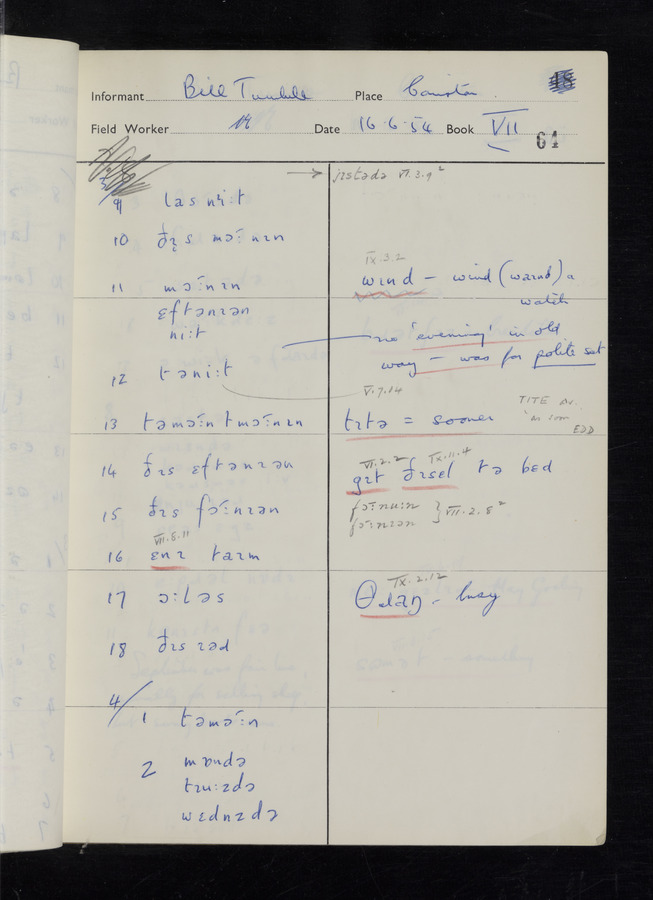 48
Informant Bill Place Coniston
Field Worker Date 16.6.54 Book VII
64
→ jɪstədə VI.3.9²
9 las nɛi:t
10 ðɪs mɔ:nɪn
IX.3.2
11 mɔ:nɪn
wɪnd – wind (waɪnd) a
watch
ɛftənɪən
ni:t
no 'evening' in old
way – was for polite set
12 təni:t
V.7.14
13 təmɔ:n tmɔ:nɪn
tɪtə = sooner
TITE Av.
'as soon
EDD
14 ðɪs ɛftənɪən
VI.2.2 IX.11.4
gɪt ðɪsel tə bɛd
15 ðɪs fɔ:nɪən
fɔ:nu:n
fɔ:nɪən } VII.2.8²
VII.8.11
16 ɛnɪ taɪm
17 ɔ:ləs
IX.2.12
θɹaŋ – busy
18 ðɪs ɪəd
4/
1 təmɔ:n
2 mʊndə
tɪu:zdə
wɛdnzdə